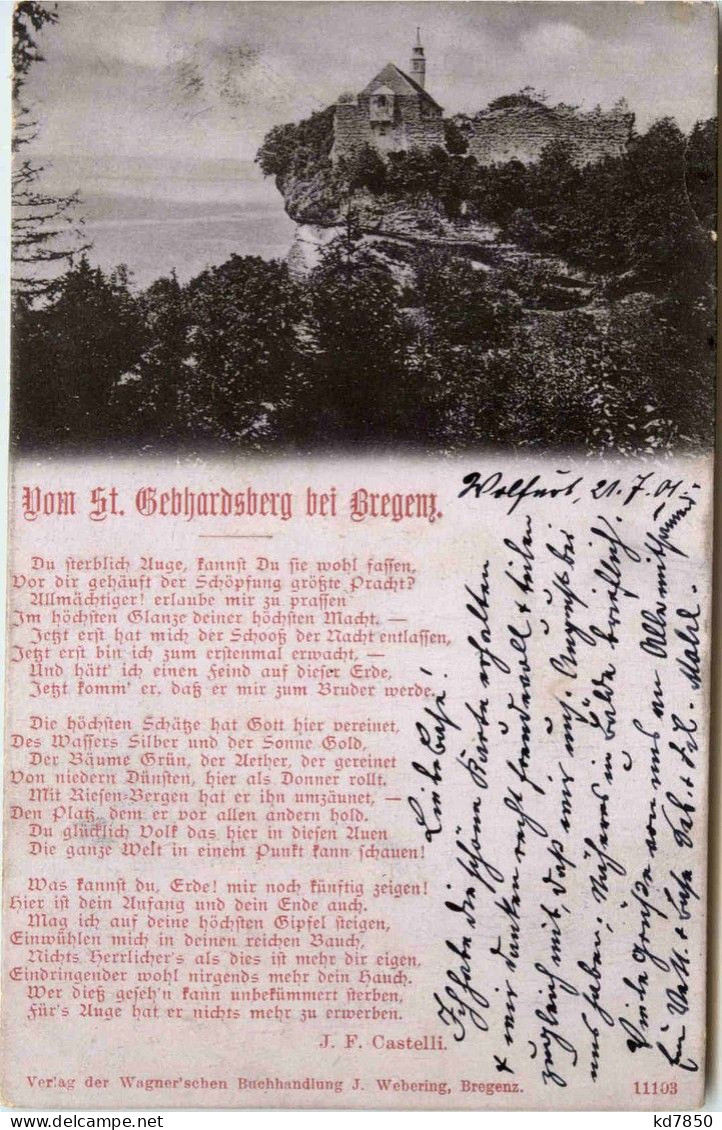 Vom St. Gebhardsberg bei Bregenz.
Du sterblich Auge, kannst Du sie wohl fassen,
Vor dir gehäuft der Schöpfung größte Pracht?
Allmächtiger! erlaube mir zu prassen
Im höchsten Glanze deiner höchsten Macht. —
Jetzt erst hat mich der Schooß der Nacht entlassen,
Jetzt erst bin ich zum erstenmal erwacht, —
Und hätt' ich einen Feind auf dieser Erde,
Jetzt komm' er, daß er mir zum Bruder werde.
Die höchsten Schätze hat Gott hier vereinet,
Des Wassers Silber und der Sonne Gold,
Der Bäume Grün, der Aether, der gereinet
Von niedern Dünsten, hier als Donner rollt.
Mit Riesen-Bergen hat er ihn umzäunet, —
Den Platz, dem er vor allen andern hold.
Du glücklich Volk das hier in diesen Auen
Die ganze Welt in einem Punkt kann schauen!
Was kannst du, Erde! mir noch künftig zeigen!
Hier ist dein Anfang und dein Ende auch.
Mag ich auf deine höchsten Gipfel steigen,
Einwühlen mich in deinen reichen Bauch,
Nichts Herrlicher's als dies ist mehr dir eigen,
Eindringender wohl nirgends mehr dein Hauch.
Wer dieß geseh'n kann unbekümmert sterben,
Für's Auge hat er nichts mehr zu erwerben.
J. F. Castelli.
Wolfurt, 21.7.01.
Liebe Base!
Ich habe die schöne Karte erhalten
+ wir danken recht freudevoll + teilen
zugleich mit, daß wir anf. August bei
uns haben; Näheres in Bälde brieflich.
Viele Grüße von uns an Alle mitsammen
für Vett. + Base Seb. + Frl. Mahl.
Verlag der Wagner'schen Buchhandlung J. Webering, Bregenz.
11103
kd7850